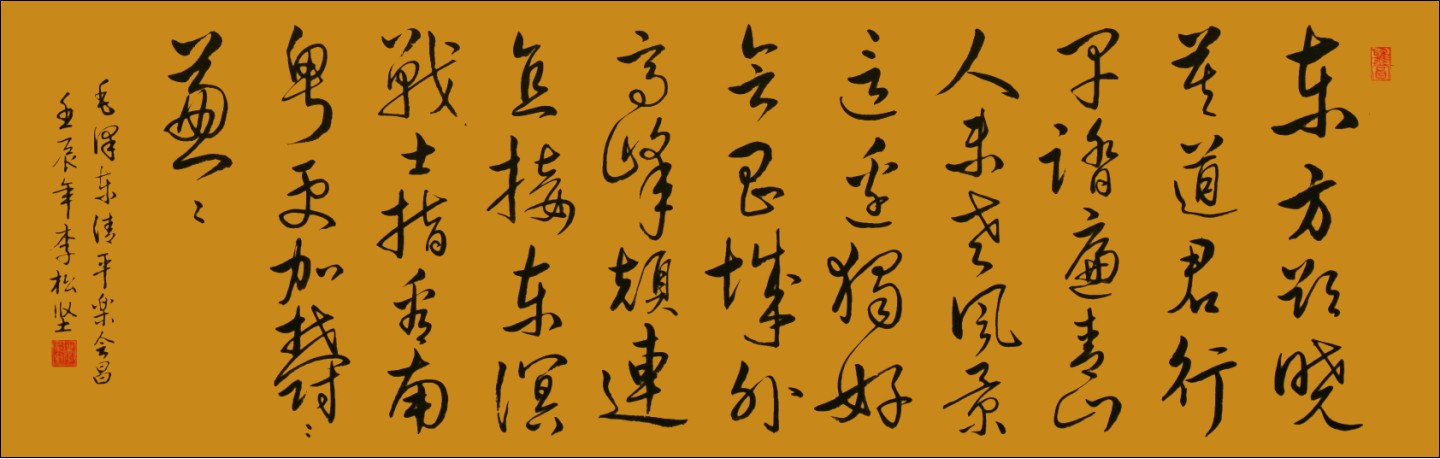 东方欲晓
莫道君行
早踏遍青山
人未老風景
這邊獨好
会昌城外
高峰顛連
直接东溟
戰士指看南
粤更加鬱〻
葱〻
毛澤东清平楽会昌
壬辰年李松坚